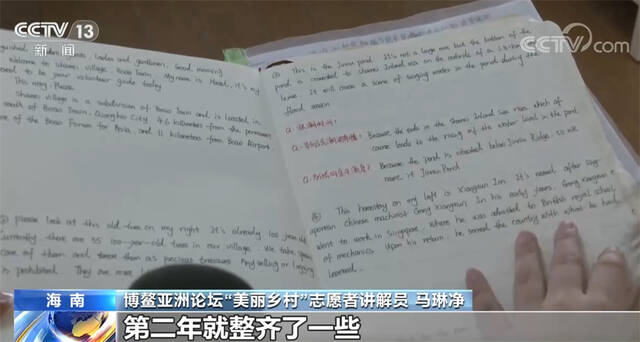 CCTV 13
新闻
CCTV.com
Leaders and gentlemen, Good morning
Welcome to Shamei village, Boao Town. My name is
need to be your volunteer guide today
This way, Please.
Shamei village is a subdivision of Boao Town and is located in
south of Boao Town, Qionghai City, 4.6 kilometers from the permanent
of the Boao Forum for Asia, and 11 kilometers from Boao Airport
please look at this old tree on my right. It's already 100 years old
Currently there are 35 100-year-old trees in our village. We take
care of them and treat them as precious treasures. Any selling or
is prohibited. They are more
This is the Junma pond. It's not a large one but the bottom of the
pond is connected to Shamei Inland sea on the
It will cause a scene of surging water in the pond during the
flood season
Because the tide in the Shamei Inland Sea rises, which of
course leads to the rising of the water level in the pond
Because the pond is located below Junma Ridge, so we
name it Junma Pond
This homestay on my left is Xiangxun Inn. It's named after
Chinese machinist Gong Xiangxun. In his early years, Gong Xiangxun
went to work in Singapore, where he was admitted to British royal school
of mechanics. Upon his return, he served the country with what he had
learned...
海南
博鳌亚洲论坛“美丽乡村”志愿者讲解员 马琳净
第二年就整齐了一些